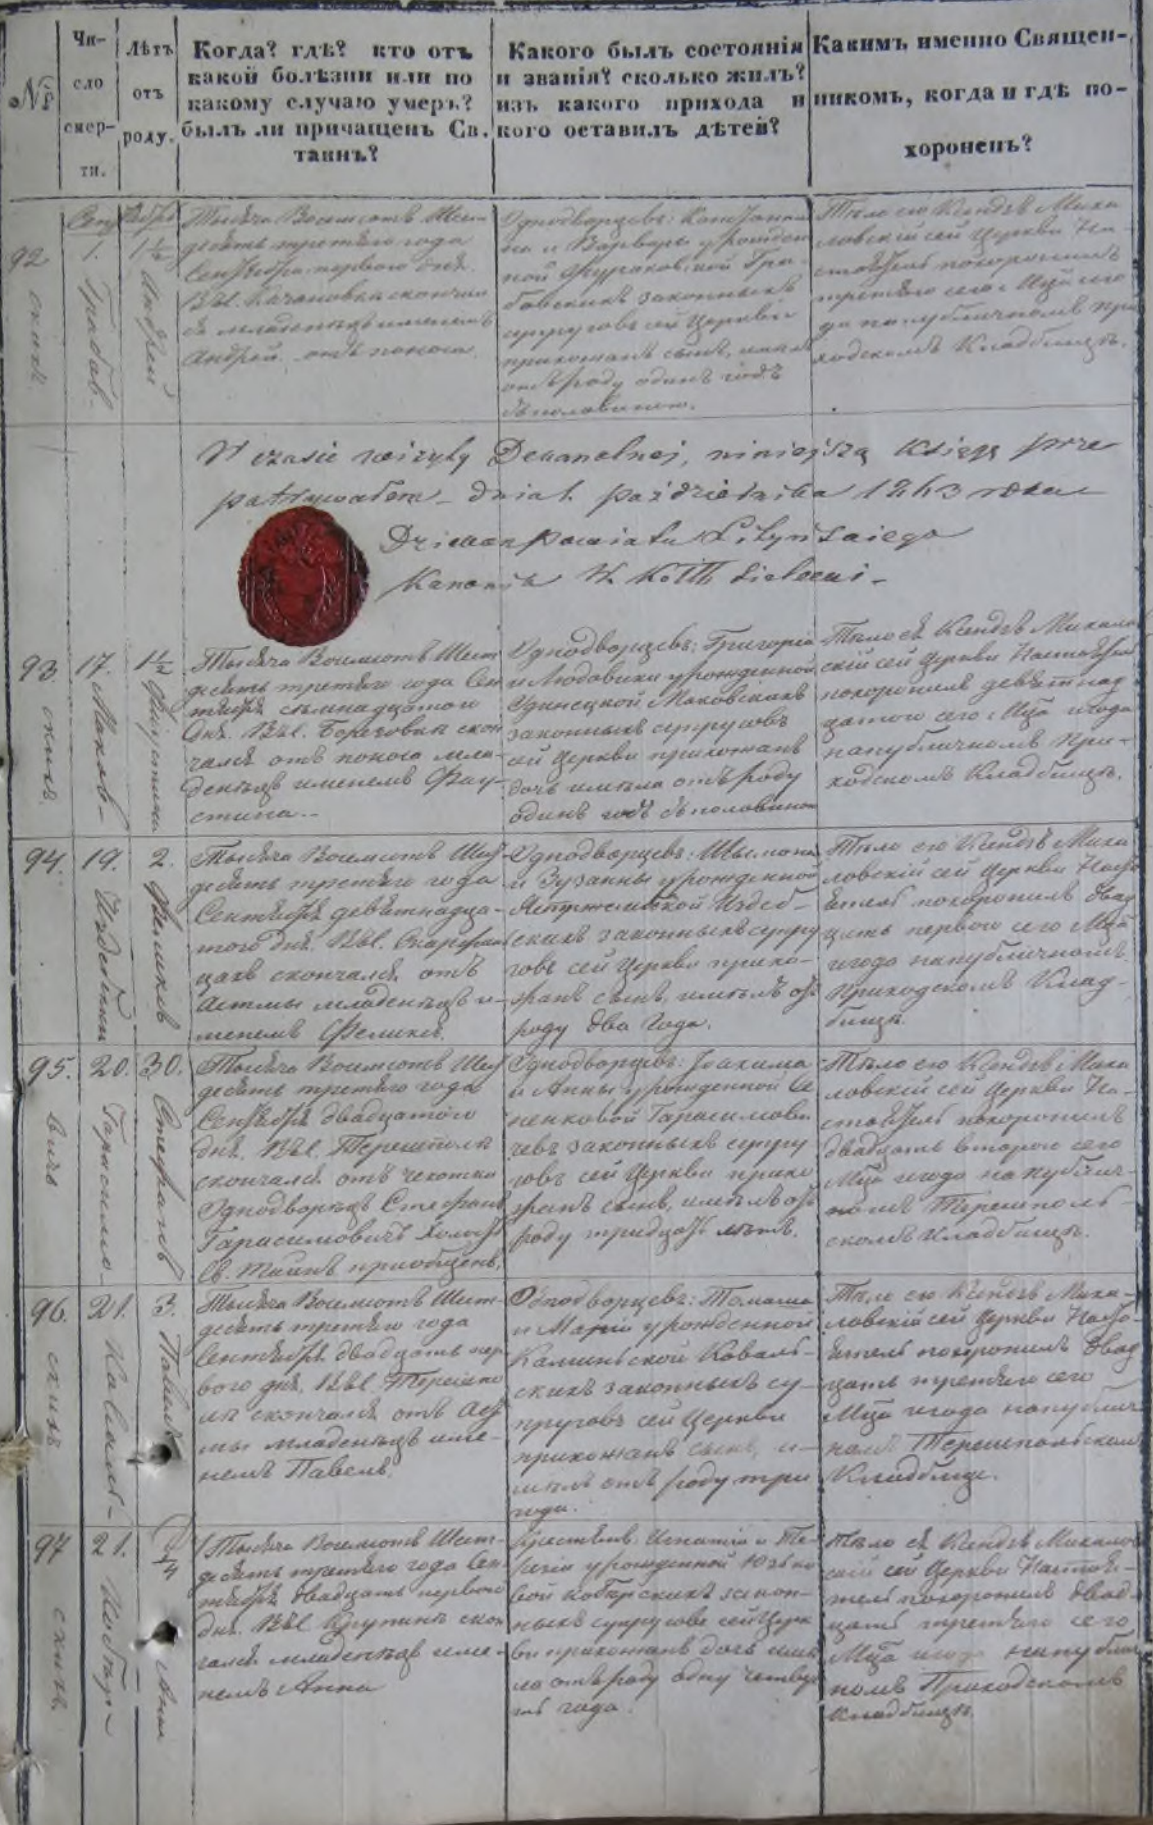 №
Чи-
сло
смер-
ти.
Лѣтъ
отъ
роду.
Когда? гдѣ? кто отъ
какой болѣзни или по
какому случаю умеръ?
былъ ли причащенъ Св.
таинъ?
Какого былъ состоянія
и званія? сколько жилъ?
изъ какого прихода и
кого оставилъ дѣтей?
Какимъ именно Священ-
никомъ, когда и гдѣ по-
хороненъ?
92
1.
1½
Андрей
Тысяча Восемсотъ Шесть
десятъ третьяго года
Сентября перваго дня
Въ с. Качановка скончал
ся младенецъ именемъ
Андрей отъ поноса
Однодворцевъ: Константи
на и Варвары урожден
ной Гра-
бовскихъ законныхъ
супруговъ сей Церкви
прихожанъ сынъ, имѣлъ
отъ роду одинъ годъ
съ половиною.
Тѣло его Ксендзъ Миха
ловскій сей Церкви На-
стоятель похоронилъ
третьяго сего Мца и го
да на публичномъ при
ходскомъ Кладбищѣ.
W czasie wizyty Dekanalnej, niniejszą Księgę prze
patrywałem dnia 1. października 1863 roku
Dziekan powiatu Lityńskiego
Kanonik
93
17.
1½
Маковс-
кихъ
Фаустина
Тысяча Восемсотъ Шест
десятъ третьяго года Сен
тября семнадцатого
дня. Въ с. скон
чался отъ поноса мла-
денецъ именемъ Фау-
стина.
Однодворцевъ: Григорія
и Людовики урожденной
Маковскихъ
законныхъ супруговъ
сей Церкви прихожанъ
дочь имѣла отъ роду
одинъ годъ съ половиною
Тѣло ея Ксендзъ Михалов
скій сей Церкви Настоятель
похоронилъ девятнад
цатого сего Мца и года
на публичномъ При-
ходскомъ Кладбищѣ.
94.
19.
2.
Феликсъ
Тысяча Восемсотъ Шест
десятъ третьяго года
Сентября девятнадца-
того дня. Въ с.
скончался отъ
астмы младенецъ и-
менемъ Феликсъ.
Однодворцевъ: Шымона
и Зузанны урожденной
скихъ законныхъ супру
говъ сей Церкви прихо-
жанъ сынъ, имѣлъ отъ
роду два года.
Тѣло его Ксендзъ Миха
ловскій сей Церкви Насто
ятель похоронилъ двад
цать перваго сего Мца
и года на публичномъ
Приходскомъ Клад-
бищѣ.
95.
20.
30.
Гарасимо-
вичъ
Стефанъ
Тысяча Восемсотъ Шест
десятъ третьяго года
Сентября двадцатого
дня. Въ с. Терешполѣ
скончался отъ чехотки
Однодворецъ Стефанъ
Гарасимовичъ холостъ
Св. Таинъ приобщенъ.
Однодворцевъ: Іоакима
и Анны урожденной Се
ненковой Гарасимови
чевъ законныхъ супру
говъ сей Церкви прихо
жанъ сынъ, имѣлъ отъ
роду тридцать лѣтъ.
Тѣло его Ксендзъ Миха
ловскій сей Церкви На-
стоятель похоронилъ
двадцать второго сего
Мца и года на публич-
номъ Терешполь-
скомъ Кладбищѣ.
96.
21.
3.
Павелъ
Тысяча Восемсотъ Шест-
десятъ третьяго года
Сентября двадцать пер
вого дня. Въ с. Терешпо
лѣ скончался отъ аст
мы младенецъ име-
немъ Павелъ.
Однодворцевъ: Томаша
и Маріи урожденной
Каминьской Коваль-
скихъ законныхъ су-
пруговъ сей Церкви
прихожанъ сынъ, и-
мѣлъ отъ роду три
года.
Тѣло его Ксендзъ Миха-
ловскій сей Церкви Насто-
ятель похоронилъ двад
цать третьяго сего
Мца и года на публич
номъ Терешпольскомъ
Кладбищѣ.
97
21.
¼
Анна
Тысяча Восемсотъ Шест-
десятъ третьяго года Сен
тября двадцать перваго
дня. Въ с. скон
чался младенецъ име-
немъ Анна
Игнатія и Те-
урожденной
закон-
ныхъ супруговъ сей Церк
ви прихожанъ дочь имѣ
ла отъ роду одну четвер
ть года.
Тѣло ея Ксендзъ Михалов
скій сей Церкви Настоя-
тель похоронилъ двад-
цать третьяго сего
Мца и года на публич
номъ Приходскомъ
Кладбищѣ.